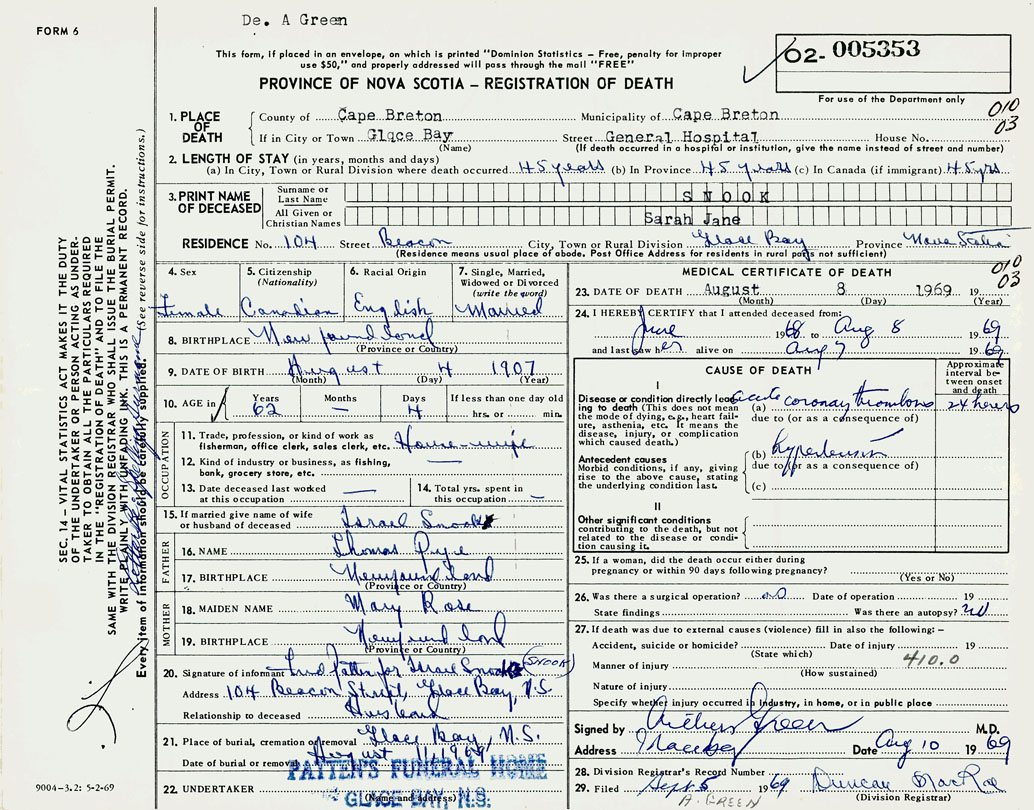 De. A Green
FORM 6
This form, if placed in an envelope, on which is printed "Dominion Statistics – Free, penalty for improper
use $50," and properly addressed will pass through the mail "FREE"
PROVINCE OF NOVA SCOTIA – REGISTRATION OF DEATH
O2- 005353
For use of the Department only
010
03
1. PLACE OF DEATH
County of Cape Breton Municipality of Cape Breton
If in City or Town Glace Bay Street General Hospital House No.
(Name) (If death occurred in a hospital or institution, give the name instead of street and number)
2. LENGTH OF STAY (in years, months and days)
(a) In City, Town or Rural Division where death occurred 45 years (b) In Province 45 years (c) In Canada (if immigrant) 45 yrs
3. PRINT NAME OF DECEASED
Surname or Last Name SNOOK
All Given or Christian Names Sarah Jane
RESIDENCE No. 104 Street Beacon City, Town or Rural Division Glace Bay Province Nova Scotia
(Residence means usual place of abode. Post Office Address for residents in rural parts not sufficient)
4. Sex Female
5. Citizenship (Nationality) Canadian
6. Racial Origin English
7. Single, Married, Widowed or Divorced (write the word) Married
8. BIRTHPLACE Newfoundland
(Province or Country)
9. DATE OF BIRTH August 4 1907
(Month) (Day) (Year)
10. AGE in Years 62 Months — Days 4 If less than one day old hrs. or min.
OCCUPATION
11. Trade, profession, or kind of work as fisherman, office clerk, sales clerk, etc. House-wife
12. Kind of industry or business, as fishing, bank, grocery store, etc. —
13. Date deceased last worked at this occupation —
14. Total yrs. spent in this occupation —
15. If married give name of wife or husband of deceased Israel Snook
FATHER
16. NAME Thomas Pye
17. BIRTHPLACE Newfoundland
(Province or Country)
MOTHER
18. MAIDEN NAME Mary Rose
19. BIRTHPLACE Newfoundland
(Province or Country)
20. Signature of informant Patten for Israel Snook (SNOOK)
Address 104 Beacon Street, Glace Bay, N.S.
Relationship to deceased Husband
21. Place of burial, cremation or removal Glace Bay, N.S.
Date of burial or removal August 11, 1969
PATTEN'S FUNERAL HOME
22. UNDERTAKER
(Name and address)
GLACE BAY, N.S.
MEDICAL CERTIFICATE OF DEATH
010
03
23. DATE OF DEATH August 8 1969 19
(Month) (Day) (Year)
24. I HEREBY CERTIFY that I attended deceased from:
June 1968 to Aug 8 1969
and last saw her alive on Aug 7 1969
CAUSE OF DEATH
Approximate interval between onset and death
I
Disease or condition directly leading to death (This does not mean the mode of dying, e.g., heart failure, asthenia, etc. It means the disease, injury, or complication which caused death.)
(a) acute coronary thrombosis 24 hours
due to (or as a consequence of)
Antecedent causes
Morbid conditions, if any, giving rise to the above cause, stating the underlying condition last.
(b) hypertension
due to (or as a consequence of)
(c)
II
Other significant conditions
contributing to the death, but not related to the disease or condition causing it.
25. If a woman, did the death occur either during pregnancy or within 90 days following pregnancy?
(Yes or No)
26. Was there a surgical operation? no Date of operation 19
State findings Was there an autopsy? no
27. If death was due to external causes (violence) fill in also the following: –
Accident, suicide or homicide? Date of injury 19
(State which)
410.0
Manner of injury
(How sustained)
Nature of injury
Specify whether injury occurred in industry, in home, or in public place
Signed by Arthur Green M.D.
Address Glace Bay Date Aug 10 1969
28. Division Registrar's Record Number
29. Filed Sept 5 1969 Duncan MacRae
(Division Registrar)
A. GREEN
9004-3.2: 5-2-69
SEC. 14 – VITAL STATISTICS ACT MAKES IT THE DUTY
OF THE UNDERTAKER OR PERSON ACTING AS UNDER-
TAKER TO OBTAIN ALL THE PARTICULARS REQUIRED
IN THE "REGISTRATION OF DEATH" AND TO FILE THE
SAME WITH THE DIVISION REGISTRAR WHO SHALL ISSUE THE BURIAL PERMIT.
WRITE PLAINLY WITH UNFADING INK. THIS IS A PERMANENT RECORD.
Every item of information should be carefully supplied. (See reverse side for instructions.)